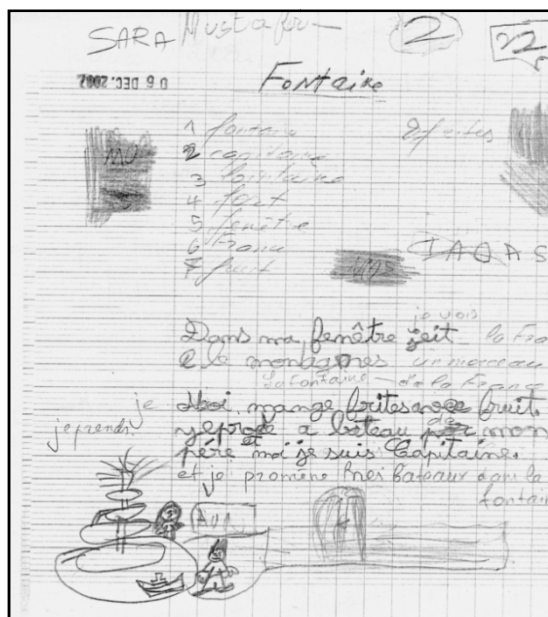 SARA Mustafa 2 22
0 6 DEC. 2002
Fontaine
1 fontaine 8 frites
2 capitaine
3 lointaine
4 font
5 fenêtre
6 France
7 fruit
je vois
Dans ma fenêtre jeit la Fra
e le montagnes un morceau
La fontaine de la France
je Moi, mange frites avoce fruit.
je prends yeproe a bateau de mon
père et moi je suis Capitaine.
et je promène mes bateaux dans la
fontain